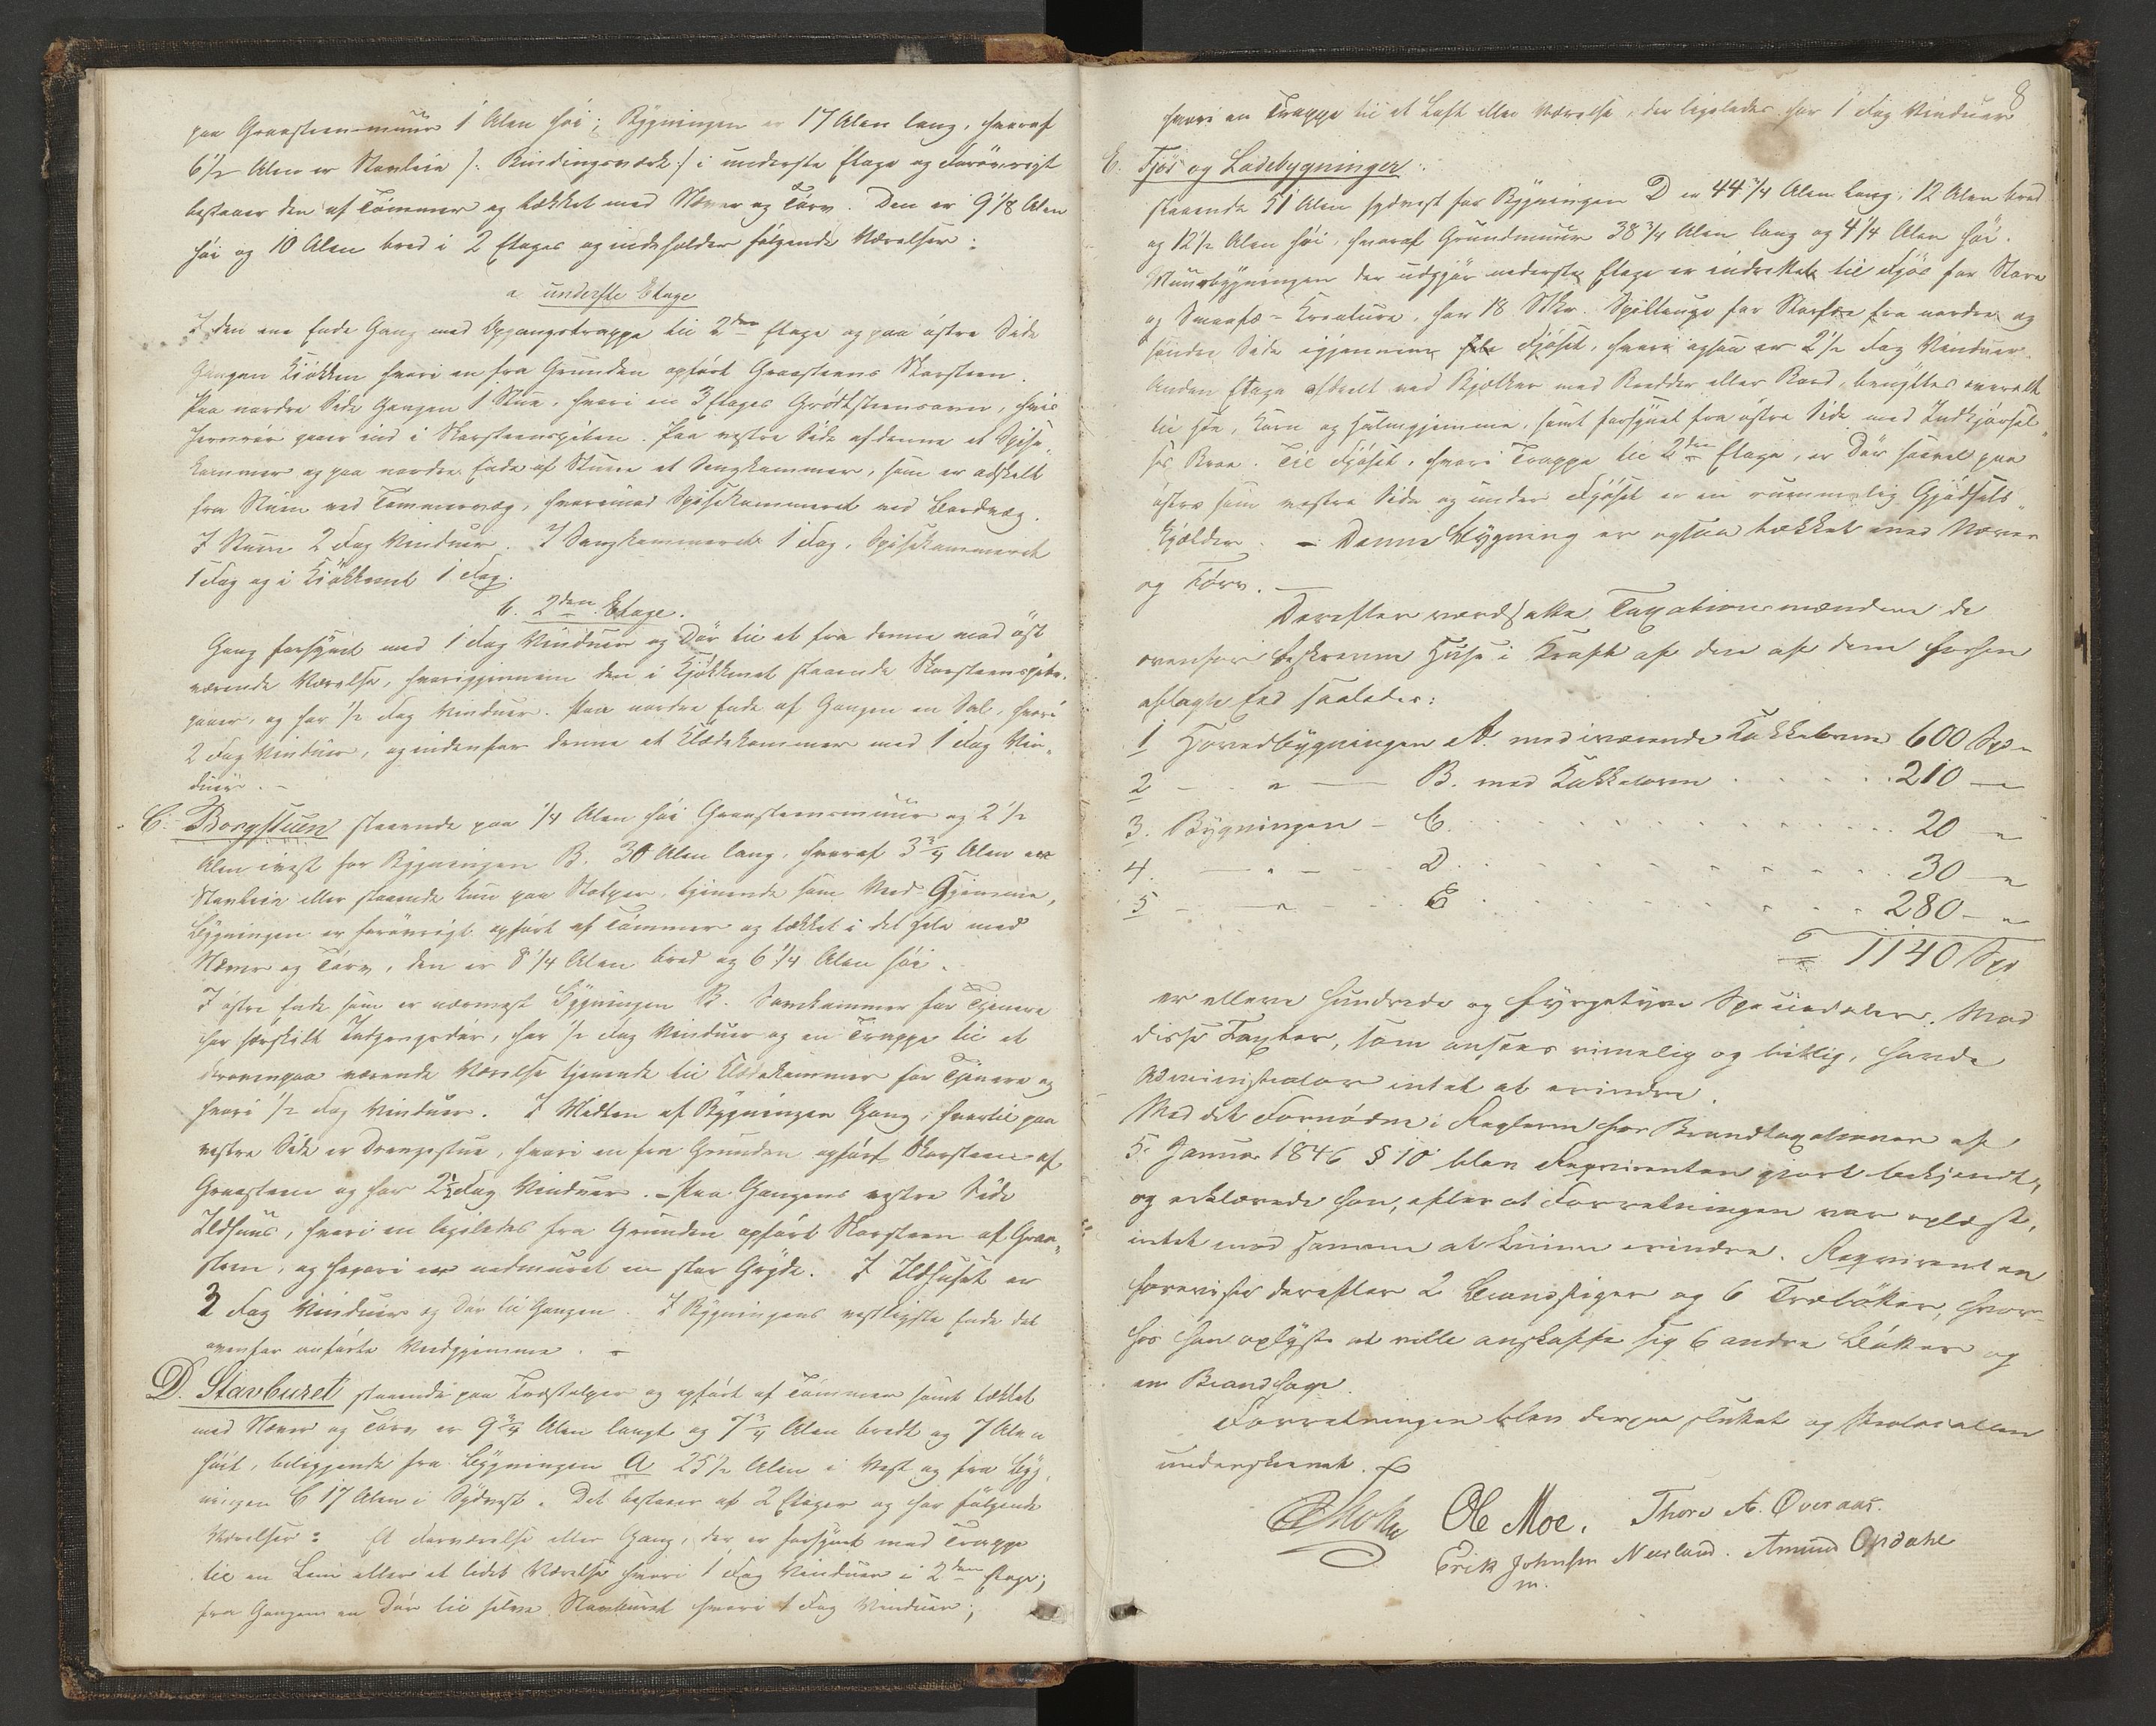 paa Graasteensmuur 1 Alen høi; Bygningen er 17 Alen lang, hvoraf
6½ Alen er Stavleie /: Bindingsværk :/ i underste Etage og forøvrigt
bestaaer den af Tømmer og tækket med Næver og Törv. Den er 9 1/8 Alen
høi og 10 Alen bred i 2 Etager og indeholder følgende Værelser:
a underste Etage
I den ene Ende Gang med Opgangstrappe til 2den Etage og paa østre Side
Gangen Kjøkken hvori en fra Grunden opført Graasteens Skorsteen.
Paa nordre Side Gangen 1 Stue, hvori en 3 Etages Grødtsteensovn, hvis
Jernrør gaaer ind i Skorsteenspiben. Paa vestre Side af denne et Spise„
kammer og paa nordre Ende af Stuen et Sengkammer, som er adskilt
fra Stuen ved Tømmervæg, hvorimod Spisekammeret ved Bordvæg.
I Stuen 2 Fag Vinduer. I Sengkammeret 1 Fag, Spisekammeret
1 Fag og i Kjøkkenet 1 Fag.
b. 2den Etage.
Gang forsynet med 1 Fag Vinduer og Dør til et fra denne mod øst
værende Værelse, hvorigjennem den i Kjøkkenet staaende Skorsteenspibe
gaaer, og har ½ Fag Vinduer. Paa nordre Ende af Gangen en Sal, hvori
2 Fag Vinduer, og indenfor denne et Klædekammer med 1 Fag Vin„
duer. –
C. Borgstuen staaende paa 1/4 Alen høi Graasteensmuur og 2½
Alen ivest for Bygningen B. 30 Alen lang, hvoraf 3 3/4 Alen er
Stavleie eller staaende kun paa Stolper, tjenende som Ved-Gjemme,
Bygningen er forøvrigt opført af Tømmer og tækket i det hele med
Næver og Törv, den er 8 1/4 Alen bred og 6 1/4 Alen høi.
I østre Ende som er nærmest Bygningen B. Sovekammer for Tjenere
har særskildt Indgangsdør, har ½ Fag Vinduer og en Trappe til et
derovenpaa værende Værelse tjenende til Klædekammer for Tjenere og
hvori ½ Fag Vinduer. I Midten af Bygningen Gang, hvortil paa
vestre Side er Drengestue, hvori en fra Grunden opført Skorsteen af
Graasteen og har 2½ Fag Vinduer. – Paa Gangens østre Side
Ildhuus, hvori en ligeledes fra Grunden opført Skorsteen af Graa„
steen, og hvori er nedmuret en stor Gryde. I Ildhuset er
3 Fag Vinduer og Dør til Gangen. I Bygningens vestligste Ende det
ovenfor anførte Vedgjemme. –
D. Stavburet staaende paa Træstolper og opført af Tømmer samt tækket
med Næver og Törv er 9 3/4 Alen langt og 7 3/4 Alen bredt og 7 Alen
høit, beliggende fra Bygningen A 25½ Alen i Vest og fra Byg„
ningen C 17 Alen i Sydvest. Det bestaaer af 2 Etager og har følgende
Værelser: Et Forværelse eller Gang, der er forsynet med Trappe
til en Lem eller et lidet Værelse hvori 1 Fag Vinduer i 2den Etage;
fra Gangen en Dør til selve Stavburet hvori 1 Fag Vinduer;
8
hvori en Trappe til et Loft eller Værelse, der ligeledes har 1 Fag Vinduer
E. Fjös og Ladebygninger:
staaende 51 Alen sydvest for Bygningen D er 44 3/4 Alen lang, 12 Alen bred
og 12½ Alen høi, hvoraf Grundmuur 38 3/4 Alen lang og 4 1/4 Alen høi.
Muurbygningen der udgjør nederste Etage er indrettet til Fjøs for Store
og Smaafæ-Kreature, har 18 Stkr. Spiltauge for Storfæ fra nordre og
søndre Side igjennem Fjøset, hvori ogsaa er 2½ Fag Vinduer.
Anden Etage afdeelt ved Bjelker med Bredder eller Bord, benyttes overalt
til Høe, Korn og Halmgjemme, samt forsynet fra østre Side med Indkjørsel„
ses Broe. Til Fjøset, hvori Trappe til 2den Etage, er Dør saavel paa
østre som vestre Side og under Fjøset er en rummelig Gjødsels„
kjælder. – Denne Bygning er ogsaa tækket med Næver
og Törv. –
Derefter værdsatte Taxationsmændene de
ovenfor beskrevne Huse i Kraft af den af dem forhen
aflagte Eed saaledes:
1 Hovedbygningen A. med iværende Kakkelovne 600 Spd
2 – „ – B. med Kakkelovn . . . . 210 – „
3. Bygningen – C. . . . . . 20 – „
4. – „ – D. . . . . . 30 – „
5 – „ – E . . . . . 280 – „
1140 Spd
er elleve Hundrede og fyrgetyve Speciedaler. Mod
disse Taxter, som ansees rimelig og billig, havde
Administrator intet at erindre.
Med det Fornødne i Reglerne for Brandtaxationer af
5. Januar 1846 § 10 blev Reqvirenten gjort bekjendt,
og erklærede han, efter at Forretningen var oplæst,
intet mod samme at kunne erindre. Reqvirenten
foreviste derefter 2 Brandstiger og 6 Træbøtter, hvor-
hos han oplyste at ville anskaffe sig 6 andre Bøtter og
en Brandhage.
Forretningen blev derpaa sluttet og Protocollen
underskrevet.
Ole Moe. Thore A. Överaas.
Erik Johnsen Nusland. Amund Opdahl
m.